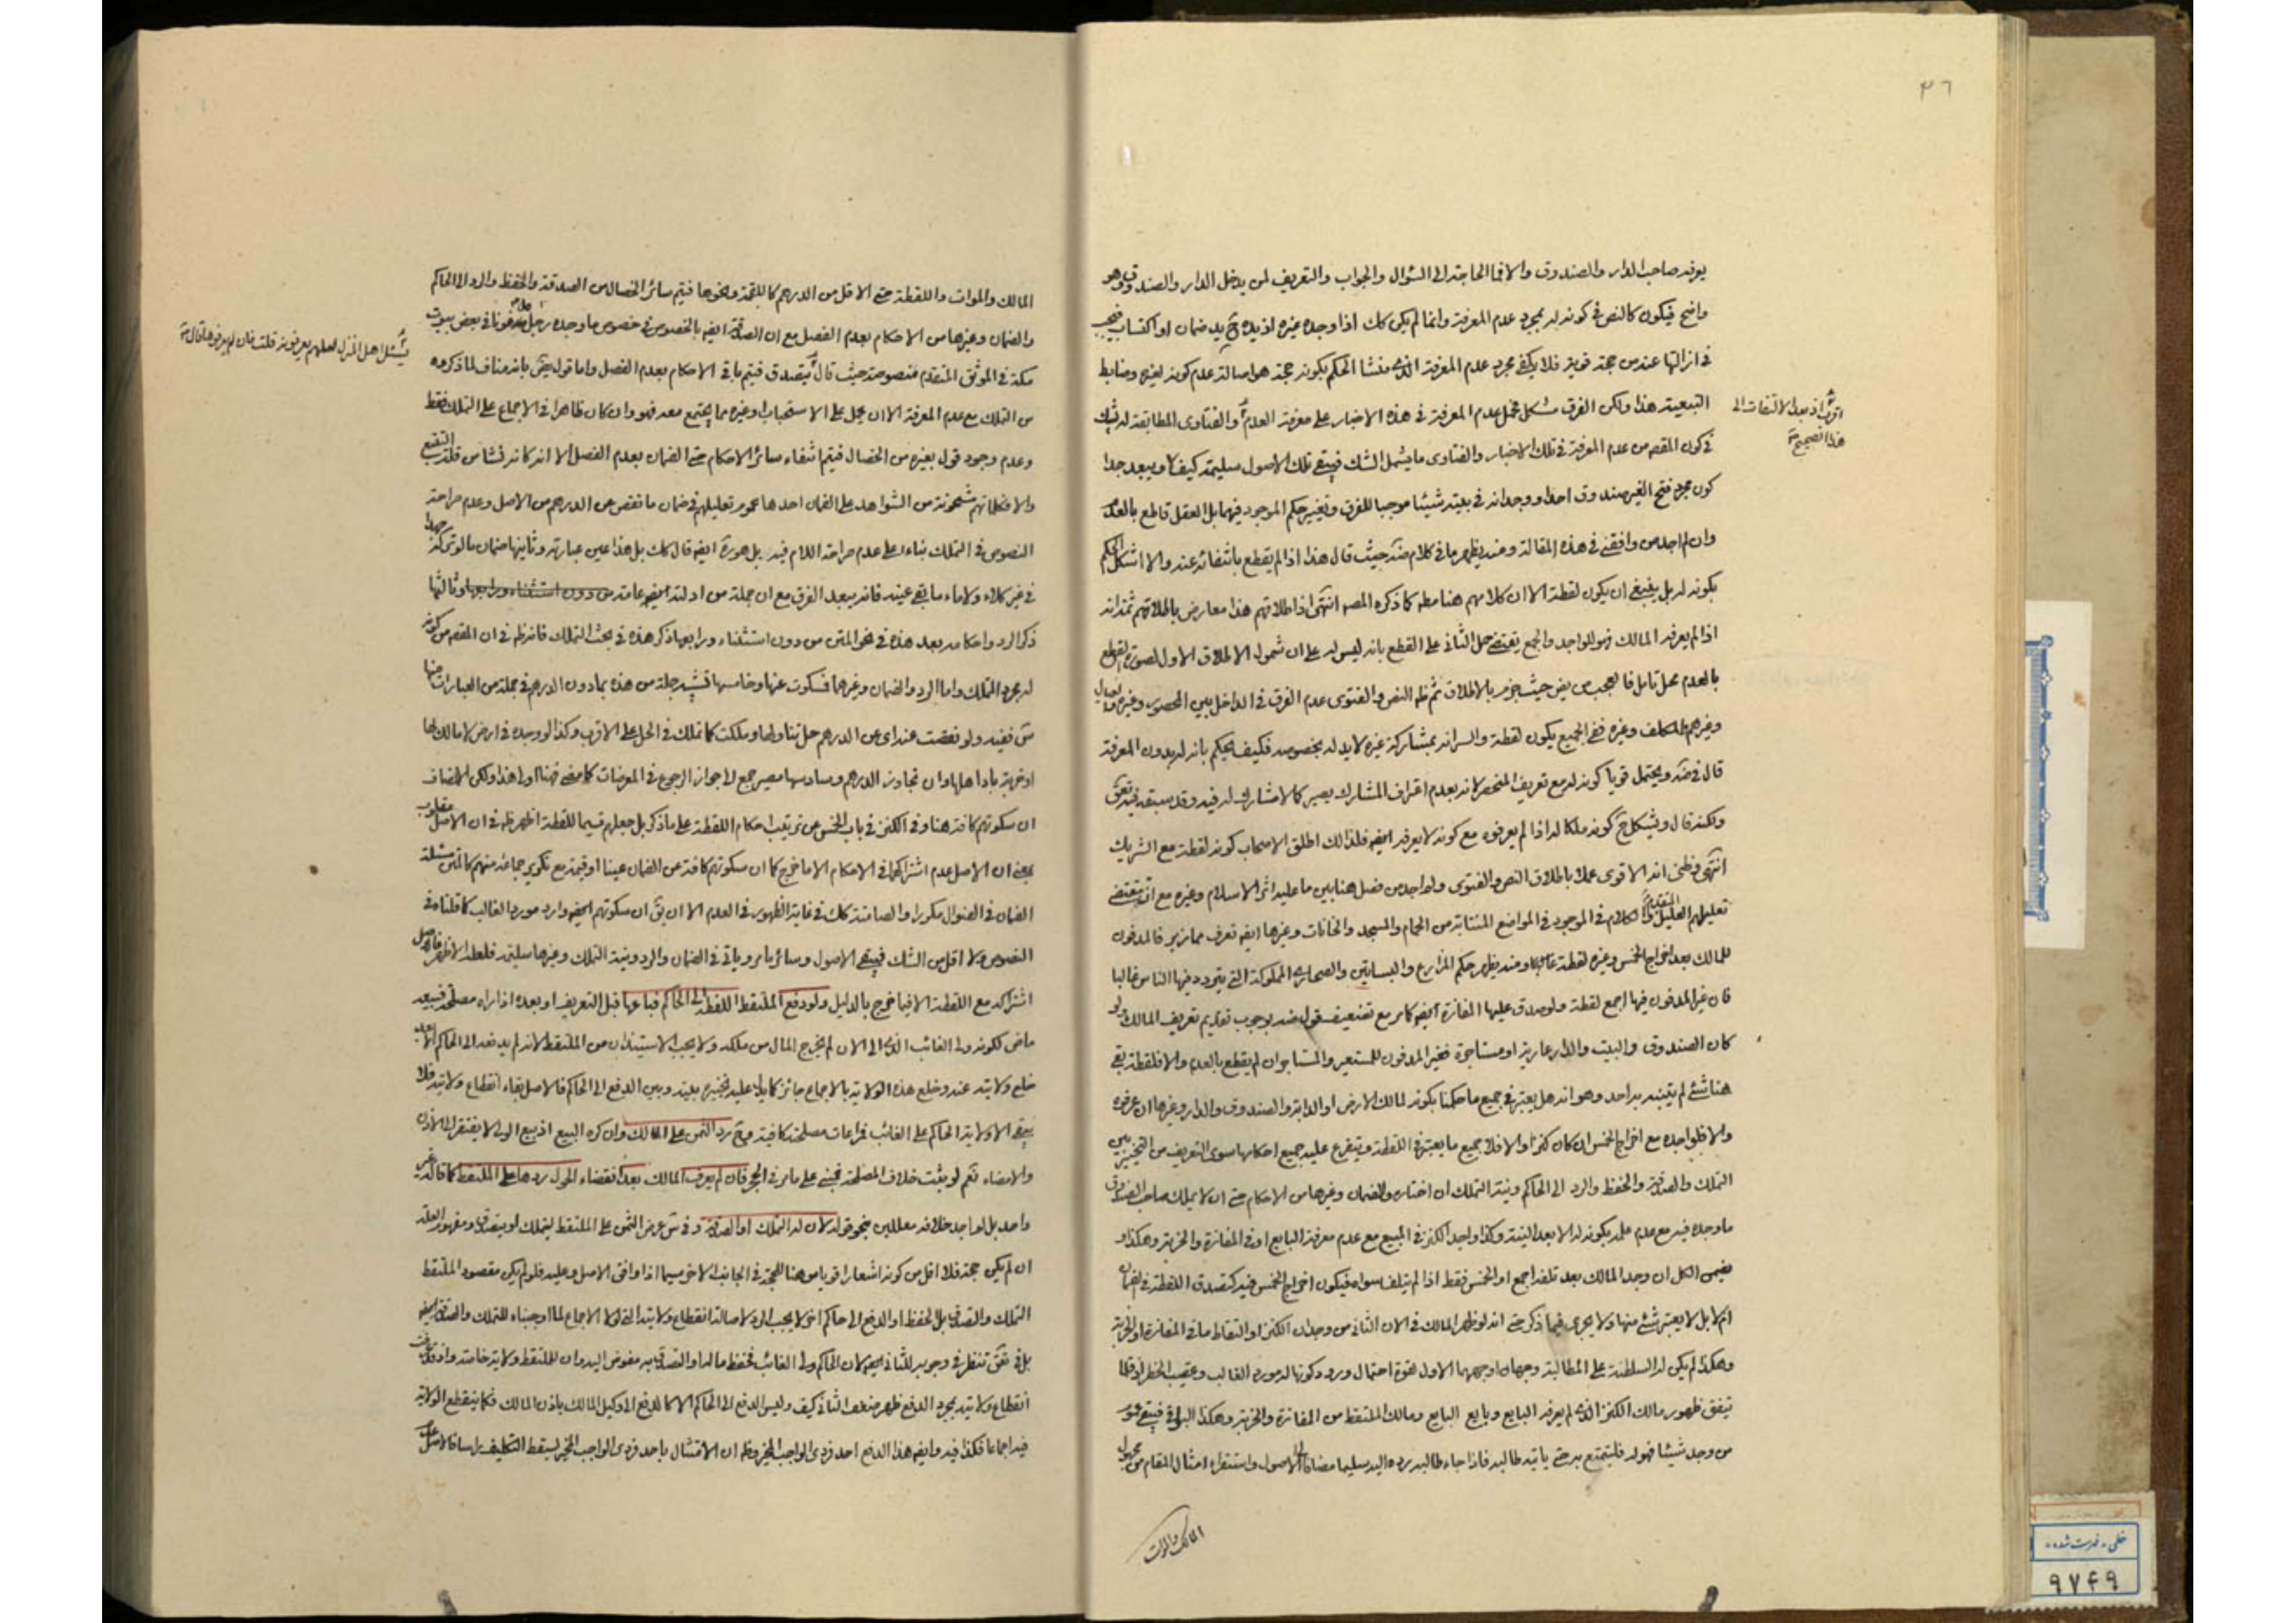 ٣٦
يوفد صاحب الدار والصندوق والا فما الحاجة الى السؤال والجواب والتعريف لمن يدخل الدار والصندوق وهو
واضح فيكون كالنص في كونه له بمجرد عدم المعرفة وانما لم يكن كك اذا وجده غيره اذ يده ح يد ضمان او اكتساب فيجب
في ازالتها عنه من حجة قوية فلا يكفي مجرد عدم المعرفة الذى منشا الحكم بكونه حجة هو اصالة عدم كونه لغيره وضابط
التبعية هذا ولكن الفرق مشكل محمل عدم المعرفة في هذه الاخبار على معرفة العدم والفتاوى المطابقة له
اذ بعد الالتفات الى
هذا تصحيح
في كون المقصه من عدم المعرفة في تلك الاخبار والفتاوى ما يشمل الشك فيبقى تلك الاصول سليمة كيف لا ويبعد جدا
كون مجرد فتح الغير صندوق احد ووجدانه في بيته شيئا موجبا للفرق وتغيير حكم الموجود فيهما بل العقل قاطع بالعدم
وان لم اجد من وافقني في هذه المقالة ومنه يظهر ما في كلام ضه حيث قال هذا اذا لم يقطع بانتفائه عنه والا اشكل الحكم
بكونه له بل ينبغي ان يكون لقطة الا ان كلامهم هنا مطه كما ذكره المصه انتهى اذ اطلاقهم هذا معارض باطلاقهم ثمة انه
اذا لم يعرفه المالك فهو للواجد والجمع يقتضي حمل الثاني على القطع بانه ليس له على ان شمول الاطلاق الاول لصورة القطع
بالعدم محل تامل فالعجب من يض حيث جزم بالاطلاق ثم ظه النص والفتوى عدم الفرق في الداخل بين المحصور وغيره والعيال
وغيرهم والمكلف وغيره ففي الجميع يكون لقطة والسر انه بمشاركة غيره لا يد له بخصوصه فكيف يحكم بانه له بدون المعرفة
قال في ضه ويحتمل قويا كونه له مع تعريف المنحصر لانه بعدم اعتراف المشارك يصير كالا مشارك له فيه وقد سبقه فيه تحق
ولكنه قال ويشكل ح كونه ملكا له اذا لم يعرفوه مع كونه لا يعرفه ايضه فلذلك اطلق الاصحاب كونه لقطة مع الشريك
انتهى وظني انه الاقوى عملا باطلاق النص والفتوى ولم اجد من فصل هنا بين ما عليه اثر الاسلام وغيره مع انه مقتضى
تعليلهم العليل المتقدم والكلام في الموجود في المواضع المنتابة من الحمام والمسجد والخانات وغيرها ايضه تعرف مما زبر فالمدفون
للمالك بعد اخراج الخمس وغيره لقطة ومنه يظهر حكم المزارع والبساتين والصحارى المملوكة التي يتردد فيها الناس غالبا
فان غير المدفون فيها اجمع لقطة ولو صدق عليها المفازة ايضه كما مر مع تضعيف قول ضه بوجوب تقديم تعريف المالك ولو
كان الصندوق والبيت والدار عارية او مستاجرة فغير المدفون للمستعير والمستاجر ان لم يقطع بالعدم والا فلقطة بقي
هنا شئ لم يتنبه به احد وهو انه هل يعتبر في جميع ما حكمنا بكونه لمالك الارض او الدابة والصندوق والدار وغيرها ان عرفه
والا فلواجده مع اخراج الخمس ان كان كنزا والا فلا جميع ما يعتبر في اللقطة ويتفرع عليه جميع احكامها سوى التعريف من التخيير بين
التملك والصدقة والحفظ والرد الى الحاكم ونية التملك ان اختاره والضمان وغيرها من الاحكام حتى ان لا يملك صاحب الصندوق
ما وجده فيه مع عدم علمه بكونه له الا بعد النية وكذا واجد الكنز في المبيع مع عدم معرفة البايع او في المفازة والخربة وهكذا و
يضمن الكل ان وجد المالك بعد تلفه اجمع او الخمس فقط اذا لم يتلف سواه فيكون اخراج الخمس فيه كتصدق اللقطة في الضمان
ام لا بل لا يعتبر شئ منها ولا يجرى فيما ذكر حتى انه لو ظهر المالك في الان الثاني من وجدان الكنز او التقاط ما في المفازة او الخربة
وهكذا لم يكن له السلطنة على المطالبة وجهان اوجههما الاول لقوة احتمال ورود كونها له مورد الغالب وعقيب الحظر اذ قلما
تيفق ظهور مالك الكنز الذى لم يعرفه البايع وبايع البايع ومالك الملتقط من المفازة والخربة وهكذا البواقي فيبقى عموم
من وجد شيئا فهو له فليتمتع به حتى ياتيه طالبه فاذا جاء طالبه رده اليه سليما مضافا الى الاصول واستقراء امثال المقام من مجهول
المالك والموات
المالك والموات واللقطة حتى الاقل من الدرهم كاللقمة ونحوها فيتم سائر الخصال من الصدقة والحفظ والرد الى الحاكم
والضمان وغيرها من الاحكام بعدم الفصل مع ان الصدقة ايضه بالخصوص في خصوص ما وجده رجل مدفونا في بعض بيوت
يسئل اهل المنزل لعلهم يعرفونه قلت فان لم يعرفوها قال
مكة في الموثق المتقدم منصوصة حيث قال يتصدق فيتم باقي الاحكام بعدم الفصل واما قول يض بانه مناف لما ذكروه
من التملك مع عدم المعرفة الا ان يحمل على الاستحباب او غيره مما يجتمع معه فهو وان كان ظاهرا في الاجماع على التملك فقط
وعدم وجود قول بغيره من الخصال فيتم انتفاء سائر الاحكام حتى الضمان بعدم الفصل الا انه كانه نشا من قلة التتبع
والا فكلماتهم مشحونة من الشواهد على الضمان احدها عموم تعليلهم في ضمان ما نقص عن الدرهم من الاصل وعدم صراحة
النصوص في التملك بناء على عدم صراحة اللام فيه بل هو رة ايضه قال كك بل هذا عين عبارته وثانيها ضمان ما لو ترك
في غير كلاء ولا ماء ما بقى عينه فانه يبعد الفرق مع ان جملة من ادلته ايضه عامة وثالثها
ذكر الرد واحكامه بعد هذه في نحو المتن من دون استثناء ورابعها ذكر هذه في بحث التملك فانه ظه في ان المقصه من كونه
له مجرد التملك واما الرد والضمان وغيرهما فسكوت عنها وخامسها تشبيه جملة من هذه بما دون الدرهم في جملة من العبارات منها
س ففيه ولو نقصت عنه اى عن الدرهم حل تناولها وملكت كما تملك في الحل على الاقرب وكذا لو وجده في ارض لا مالك لها
او خربة باد اهلها وان تجاوز الدرهم وسادسها مصير جمع الى جواز الرجوع في المعرضات كما مضى فهنا اولى هذا ولكن الانصاف
ان سكوتهم كافة هنا وفي الكنز في باب الخمس عن ترتيب احكام اللقطة على ما ذكر بل جعلهم قسيما للقطة اظهر ظه في ان الاصل مقلوب
بمعنى ان الاصل عدم اشتراكهما في الاحكام الا ما خرج كما ان سكوتهم كافة عن الضمان عينا او قيمة مع تكرير جماعة منهم كالمتن مسئلة
الضمان في الضوال مكررا والصامتة كك في غاية الظهور في العدم الا ان يق ان سكوتهم ايضه وارد مورد الغالب كما قلناه في
النصوص ولا اقل من الشك فيبقى الاصول وسائر ما مر وياتي في الضمان والرد ونية التملك وغيرها سليمة فلعله الاظهر فالاصل
اشتراكه مع اللقطة الا فيما خرج بالدليل ولو دفع الملتقط اللقطة الى الحاكم فباعها قبل التعريف او بعده اذا راه مصلحة فبيعه
ماض لكونه ولى الغائب الذى الى الان لم يخرج المال من ملكه ولا يجب الاستيذان من الملتقط لانه لم يدفعه الى الحاكم الا بعد
خلع ولايته عنه وخلع هذه الولاية بالاجماع جائز كما يدل عليه تخييره بينه وبين الدفع الى الحاكم فالاصل بقاء انقطاع ولايته فلا
يبقى الا ولاية الحاكم على الغائب فمراعات مصلحته كافية وح رد الثمن على المالك وان كره البيع اذ بيع الولى لا يفتقر الى الاذن
والامضاء نعم لو بيعت خلاف المصلحة فيجئ على ما مر في الحجر فان لم يعرف المالك بعد انقضاء الحول ردها على الملتقط كما قاله غير
واحد بل لم اجد خلافه معللين بنحو قوله لان له التملك او الصدقة وفي س عرض الثمن على الملتقط ليتملك او يتصدق ومفهوم العلة
ان لم يكن حجة فلا اقل من كونه اشعارا قويا من هنا للحجة في الجانب الاخر سيما اذا وافق الاصل وعليه فلو لم يكن مقصود الملتقط
التملك والتصدق بل الحفظ او الدفع الى حاكم اخر لا يجب الرد لاصالة انقطاع ولايته التي لولا الاجماع لما اوجبناه للتملك والصدقة ايضه
بل في تحق تنظر في وجوبه للثاني ايضه لان الحاكم ولى الغائب فحفظ ماله او التصدق به مفوض اليه وان للملتقط ولاية خاصة واذ عرفت
انقطاع ولايته بمجرد الدفع ظهر ضعف الثاني كيف وليس الدفع الى الحاكم الا كالدفع الى وكيل المالك باذن المالك فكما ينقطع الولاية
فيه اجماعا فكذا فيه وايضه هذا الدفع احد فردى الواجب المخير وظه ان الامتثال باحد فردى الواجب المخير يسقط التكليف راسا فالاصل عدم
خطى . فهرست شده .
٩٧٤٩